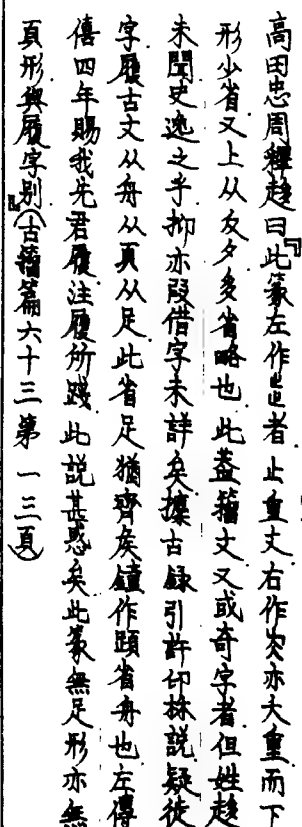 高田忠周釋趍曰『此篆左作𧺆者止重文右作夾亦大重而下
形少省又上从夊夕多省略也此蓋籀文又或奇字者但姓趍
未聞史逸之乎抑亦叚借字未詳矣攗古録引許印林說疑徒
字履古文从舟从頁从足此省足猶齊矦鎛作顕省舟也左傳
僖四年賜我先君履注履所踐此說甚惑矣此篆無足形亦無
頁形與履字別』(古籀篇六十三第一三頁)